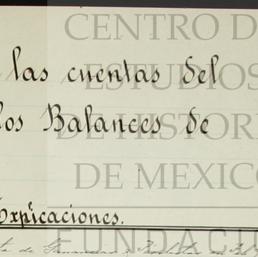 CENTRO D
las cuentas del
ESTUDIOS
los Balances de
DE HISTOR
DE MEXIC
Expicaciones.
FUNDACI